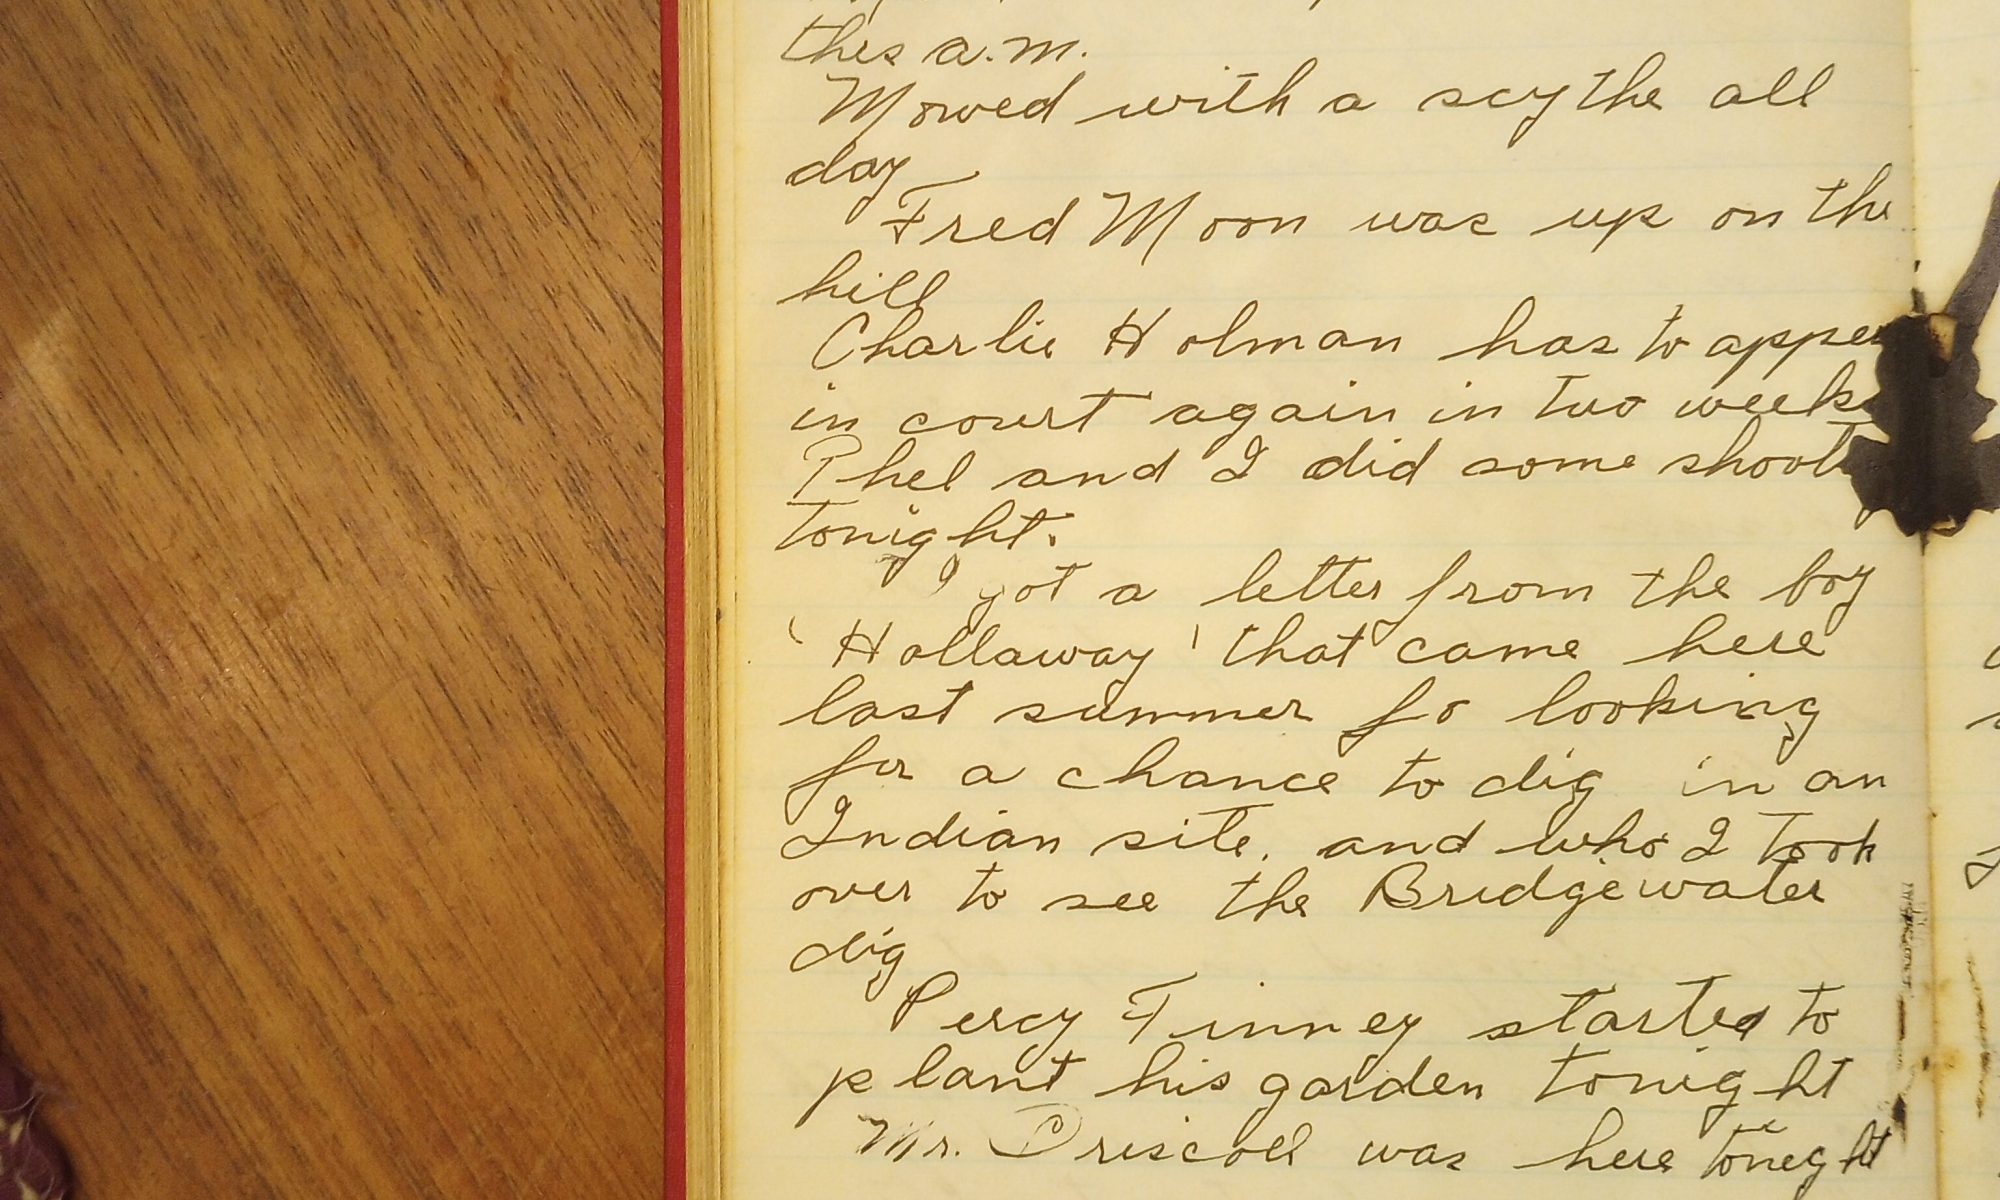 this a.m.
Mowed with a scythe all
day
Fred Moon was up on the
hill
Charlie Holman has to appea
in court again in two weeks
Phel and I did some shoot
tonight.
I got a letter from the boy
'Hollaway' that came here
last summer fo looking
for a chance to dig in an
Indian site. and who I took
over to see the Bridgewater
dig
Percy Finney started to
plant his garden tonight
Mr. Driscoll was here tonight